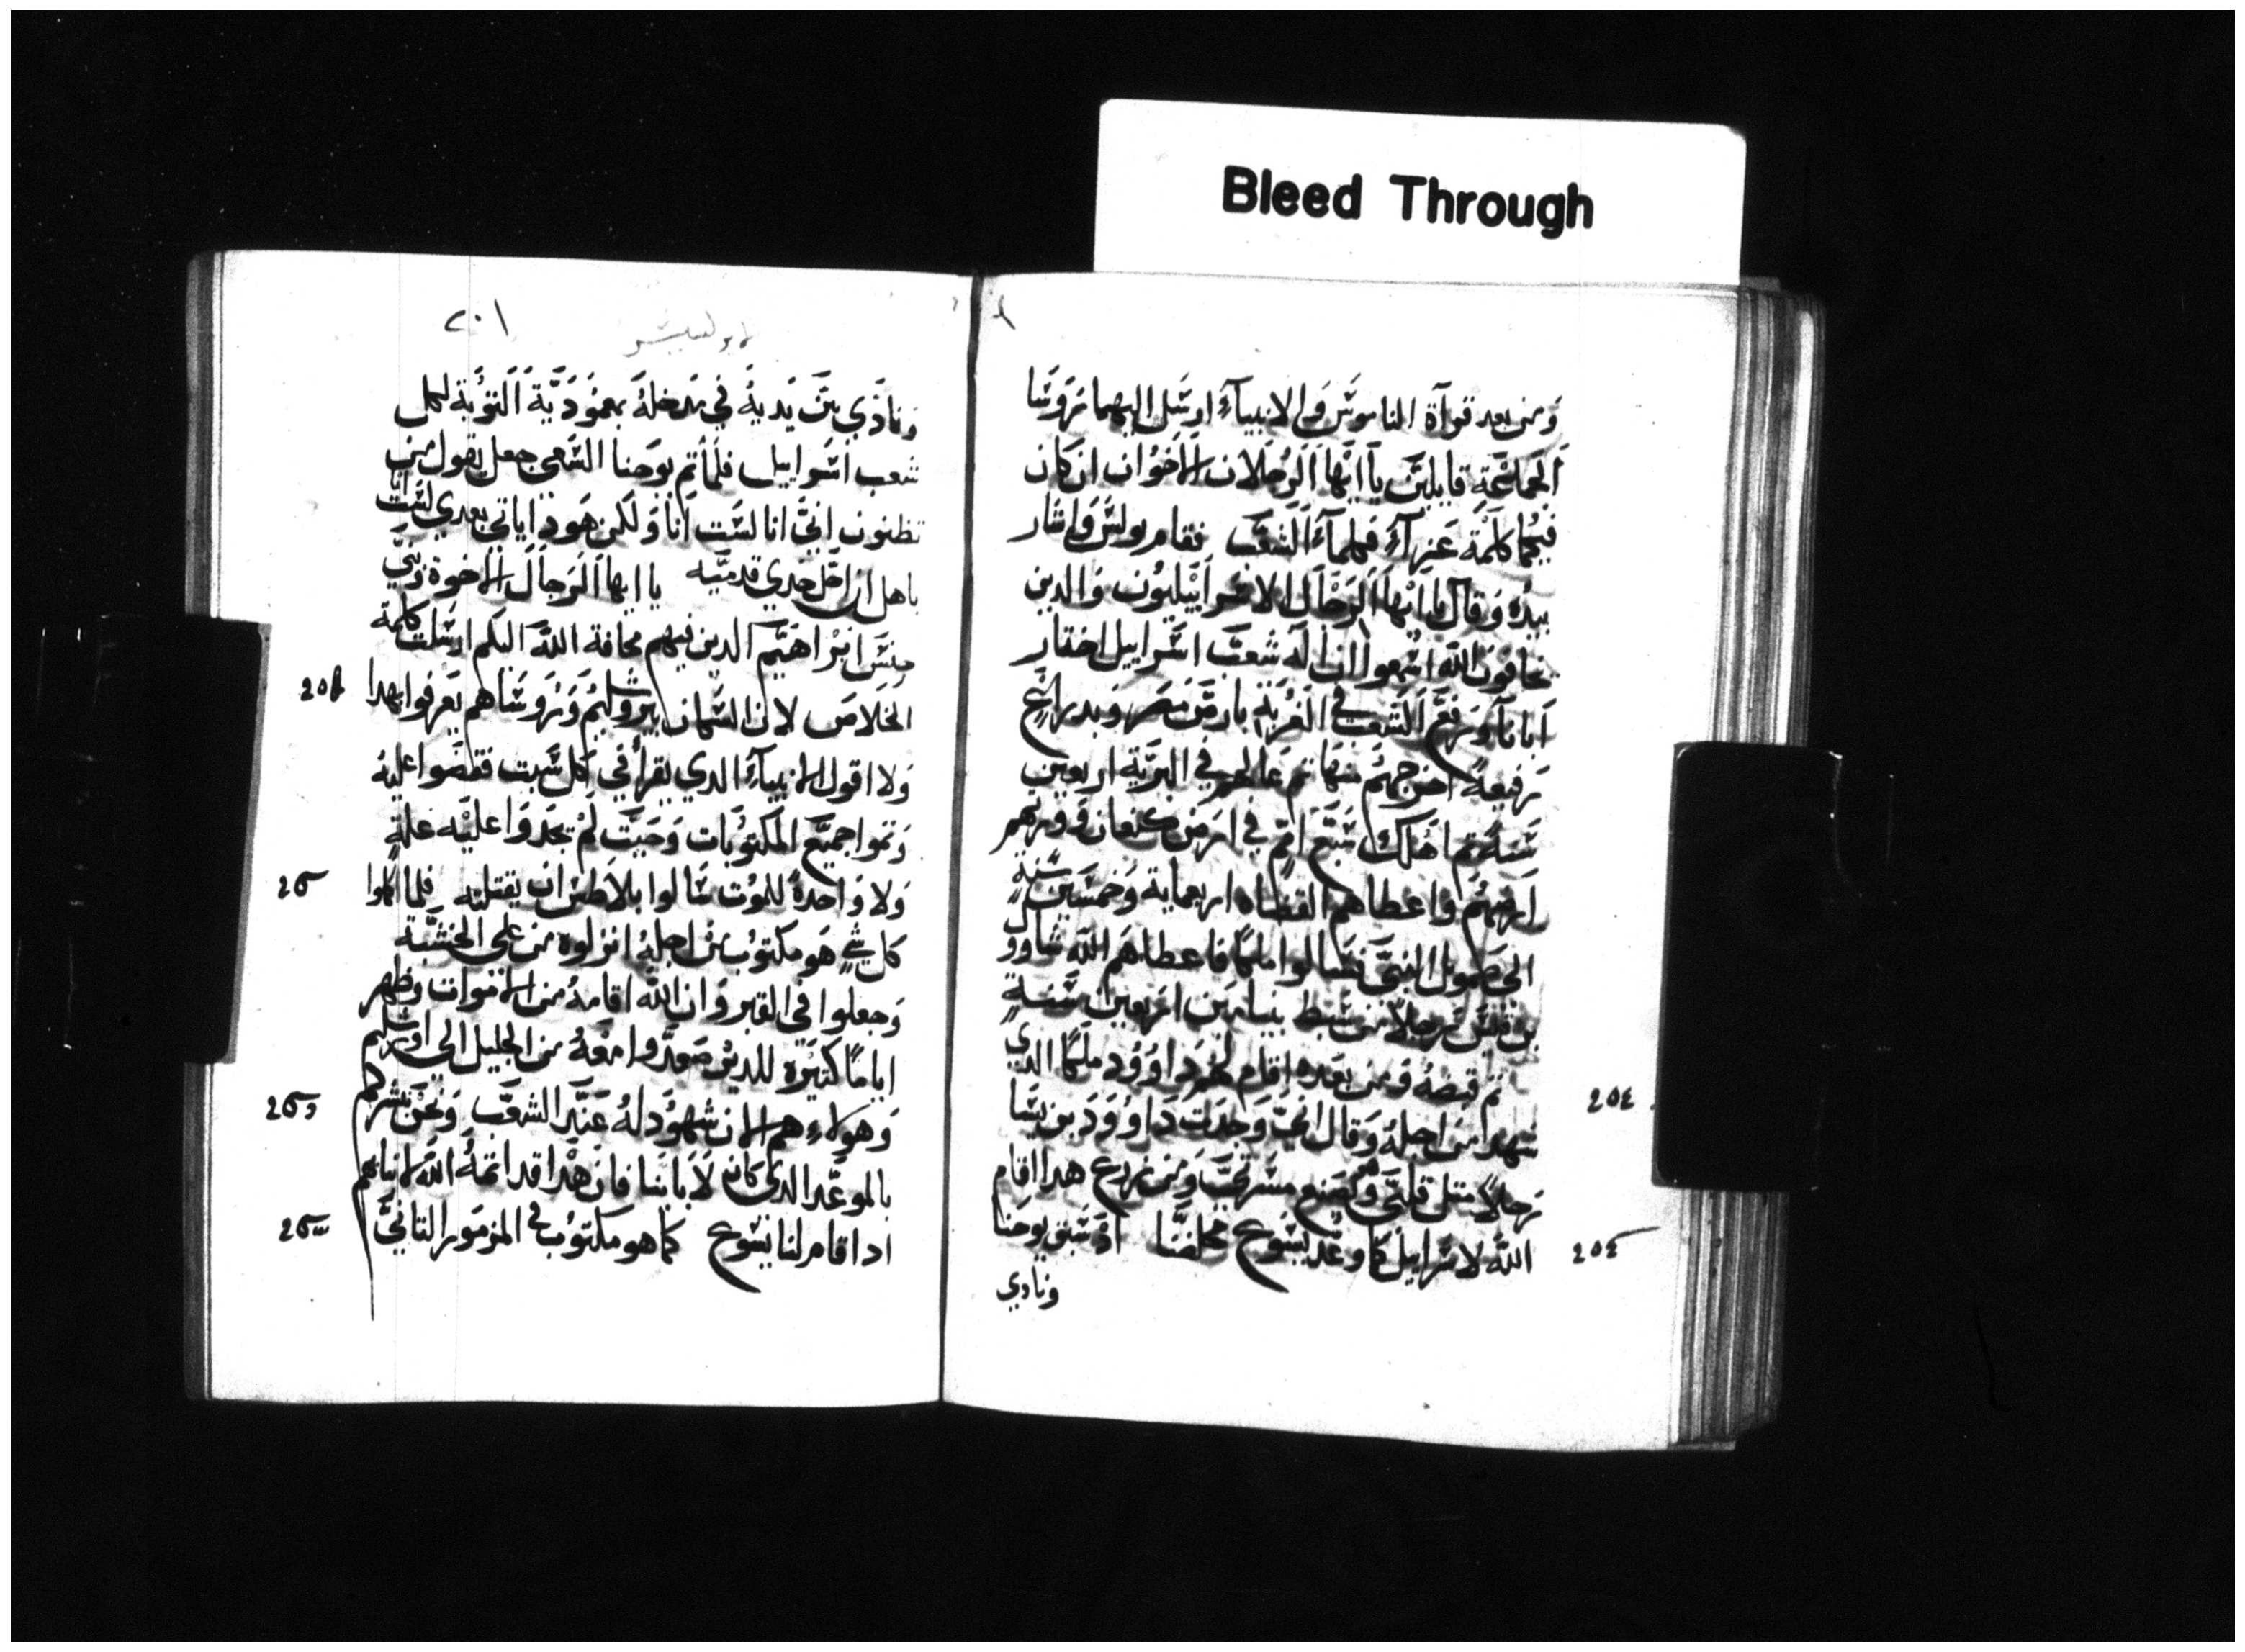 Bleed Through
ومن بعد قرآة الناموس والانبيآء ارسل اليهما روسا
الجماعة قايلين يا ايها الرجلان الاخوان ان كان
فيكما كلمة عزآء فكلمآ الشعب فقام بولس واشار
بيده وقال يا ايها الرجال الاسراييليون والدين
يخافون الله اسمعوا ان اله شعب اسراييل اختار
ابانا ورفع الشعب في الغربة بارض مصر وبدراع
رفيعة اخرجهم منها ثم عالهم في البرية اربعين
سنة ثم اهلك سبع امم في ارض كنعان وورثهم
ارضهم واعطاهم القضاه اربعماية وخمسين سنة
الى صمويل النبي فسالوا ملكا فاعطاهم الله شاوول
بن قيس رجلا من سبط بنيامين اربعين سنة
ثم قبضه ومن بعده اقام لهم داوود ملكا الدي
شهد من اجله وقال اني وجدت داوود بن يسا
رجلا مثل قلبي وهو يصنع مسرتي ومن زرع هدا اقام
الله لاسراييل كما وعد يسوع مخلصنا اد سبق يوحنا
ونادي
٢٠١
ونادي بين يديه في مدخله بعمودية التوبة لكل
شعب اسراييل فلما تم يوحنا السعي جعل يقول من
تظنون اني انا لست انا ولكن هودا ياتي بعدي لست انا
باهل ان احل حدي قدميه يا ايها الرجال الاخوة وبني
جنس ابراهيم الدين فيهم مخافة الله اليكم ارسلت كلمة
الخلاص لان السكان بيروشليم وروساهم يعرفوا بهدا
ولا اقول الانبيآء الدي يقرأ في كل سبت فقضوا عليه
وتموا جميع المكتوبات وحيت لم يجدوا عليه علة
ولا واحدة للموت سالوا بلاطس ان يقتله فلما اكملوا
كل شي هو مكتوب من اجله انزلوه من على الخشبة
وجعلوا في القبر وان الله اقامه من الاموات وظهر
اياما كتيره للدين صعدوا معه من الجليل الى اورشليم
وهولاء هم الان شهود له عند الشعب ونحن نبشركم
بالموعد الدي كان لابائنا فان هدا قد اتمه الله لابنايهم
اد اقام لنا يسوع كما هو مكتوب في المزمور التاني